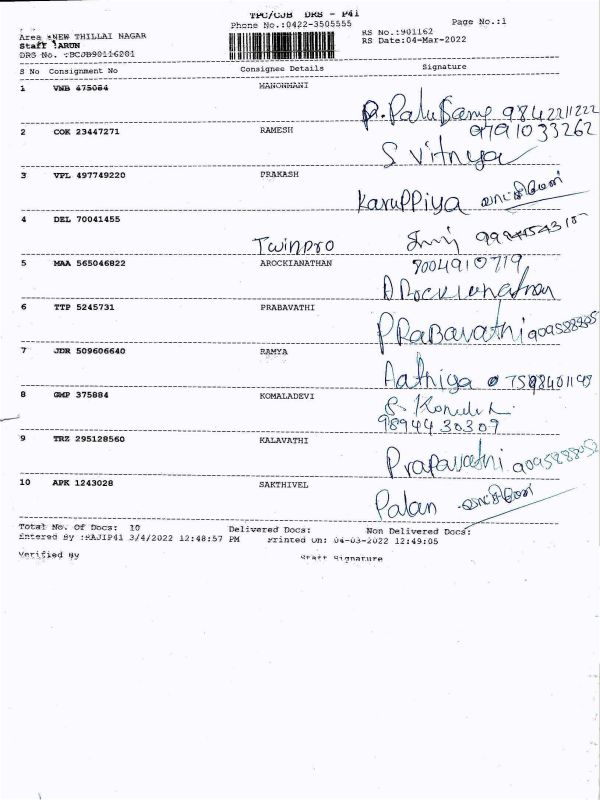 TPC/CJB DRS - P41
Phone No.:0422-3505555
Page No.:1
Area :NEW THILLAI NAGAR
RS No.:901162
Staff :ARUN
RS Date:04-Mar-2022
DRS No. :BCJB90116201
S No Consignment No Consignee Details Signature
1 VNB 475084 MANONMANI
9842211222
2 COK 23447271 RAMESH 9791033262
S Vithya
3 VPL 497749220 PRAKASH
Karuppiya வாட்ச்மேன்
4 DEL 70041455
Twinpro
5 MAA 565046822 AROCKIANATHAN 7004910719
6 TTP 5245731 PRABAVATHI
PRaBavathi
7 JDR 509606640 RAMYA
Aathiya
8 GMP 375884 KOMALADEVI
9894430307
9 TRZ 295128560 KALAVATHI
Prapavathi
10 APK 1243028 SAKTHIVEL
Palan வாட்ச்மேன்
Total No. Of Docs: 10 Delivered Docs: Non Delivered Docs:
Entered By :RAJIP41 3/4/2022 12:48:57 PM Printed On: 04-03-2022 12:49:05
Verified By Staff Signature